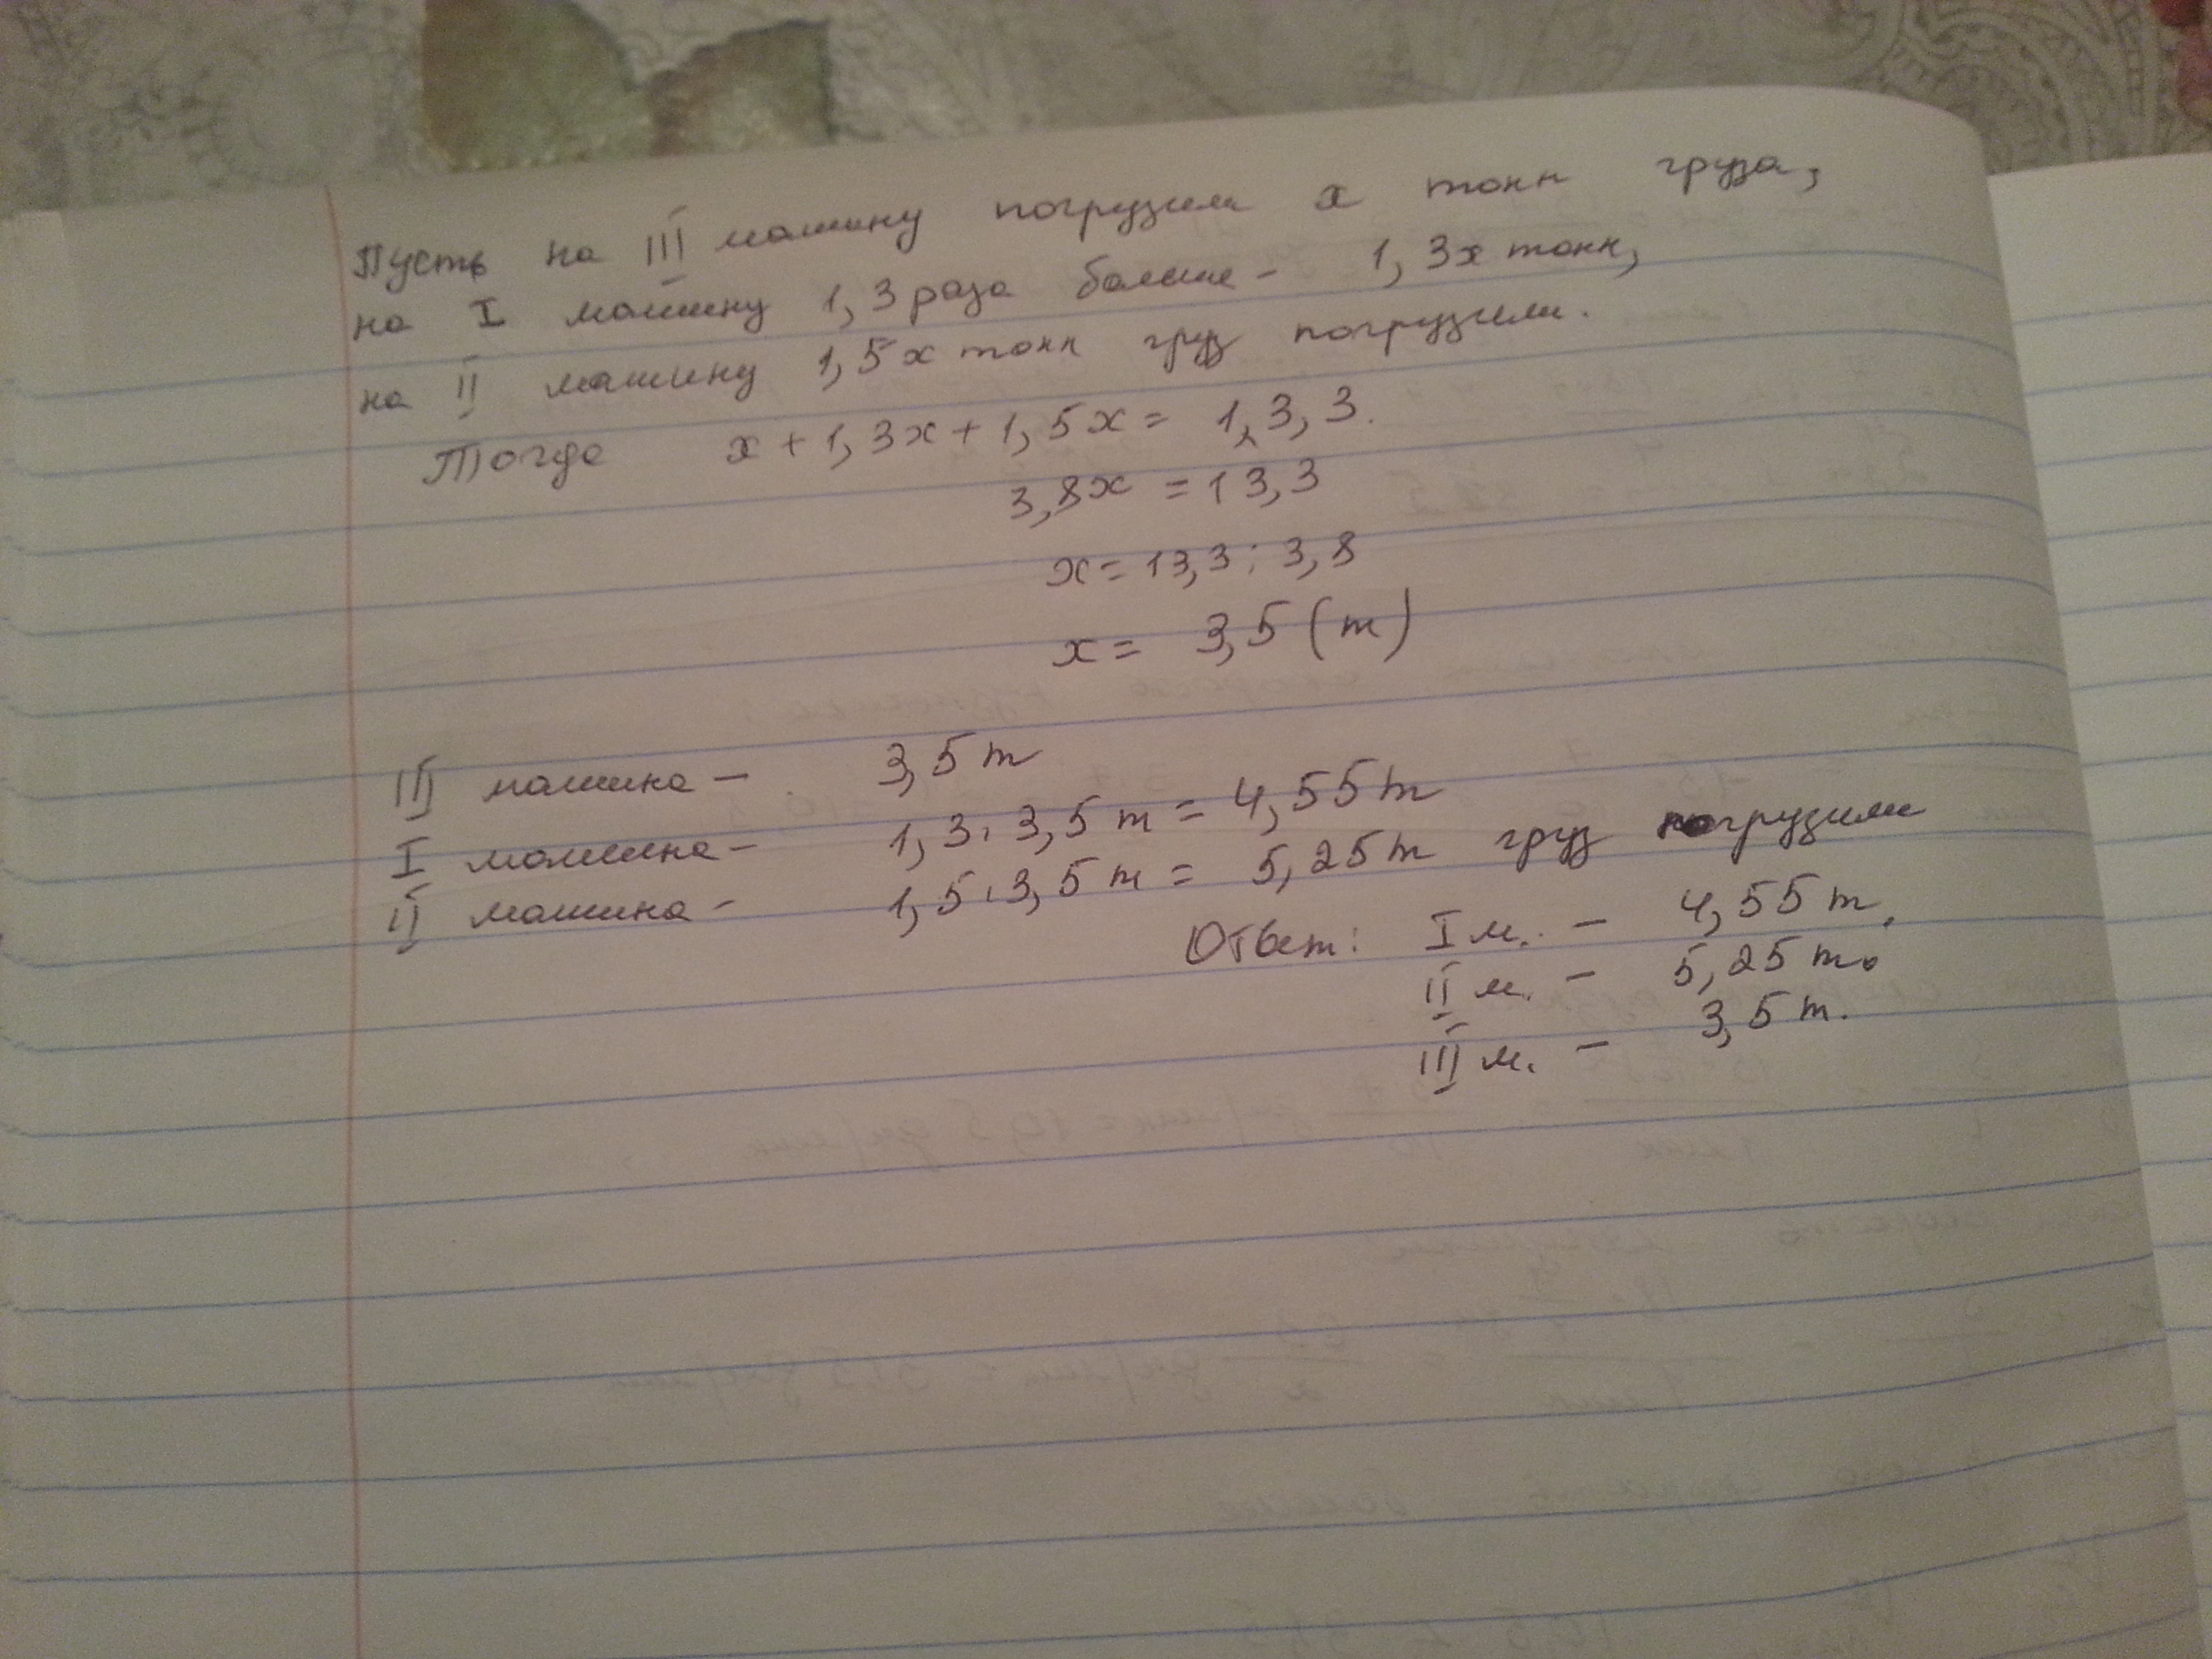 Пусть на III машину погрузили x тонн груза,
на I машину 1,3 раза больше - 1,3x тонн,
на II машину 1,5x тонн груз погрузили.
Тогда x + 1,3x + 1,5x = 1,3,3.
3,8x = 13,3
x = 13,3 : 3,8
x = 3,5 (т)
III машина - 3,5 т
I машина - 1,3 · 3,5 т = 4,55 т
II машина - 1,5 · 3,5 т = 5,25 т груз погрузили
Ответ: I м. - 4,55 т.
II м. - 5,25 т.
III м. - 3,5 т.